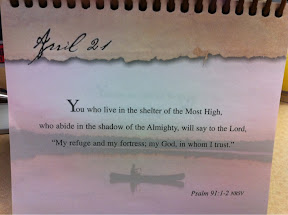 April 21
You who live in the shelter of the Most High,
who abide in the shadow of the Almighty, will say to the Lord,
"My refuge and my fortress; my God, in whom I trust."
Psalm 91:1-2 NRSV